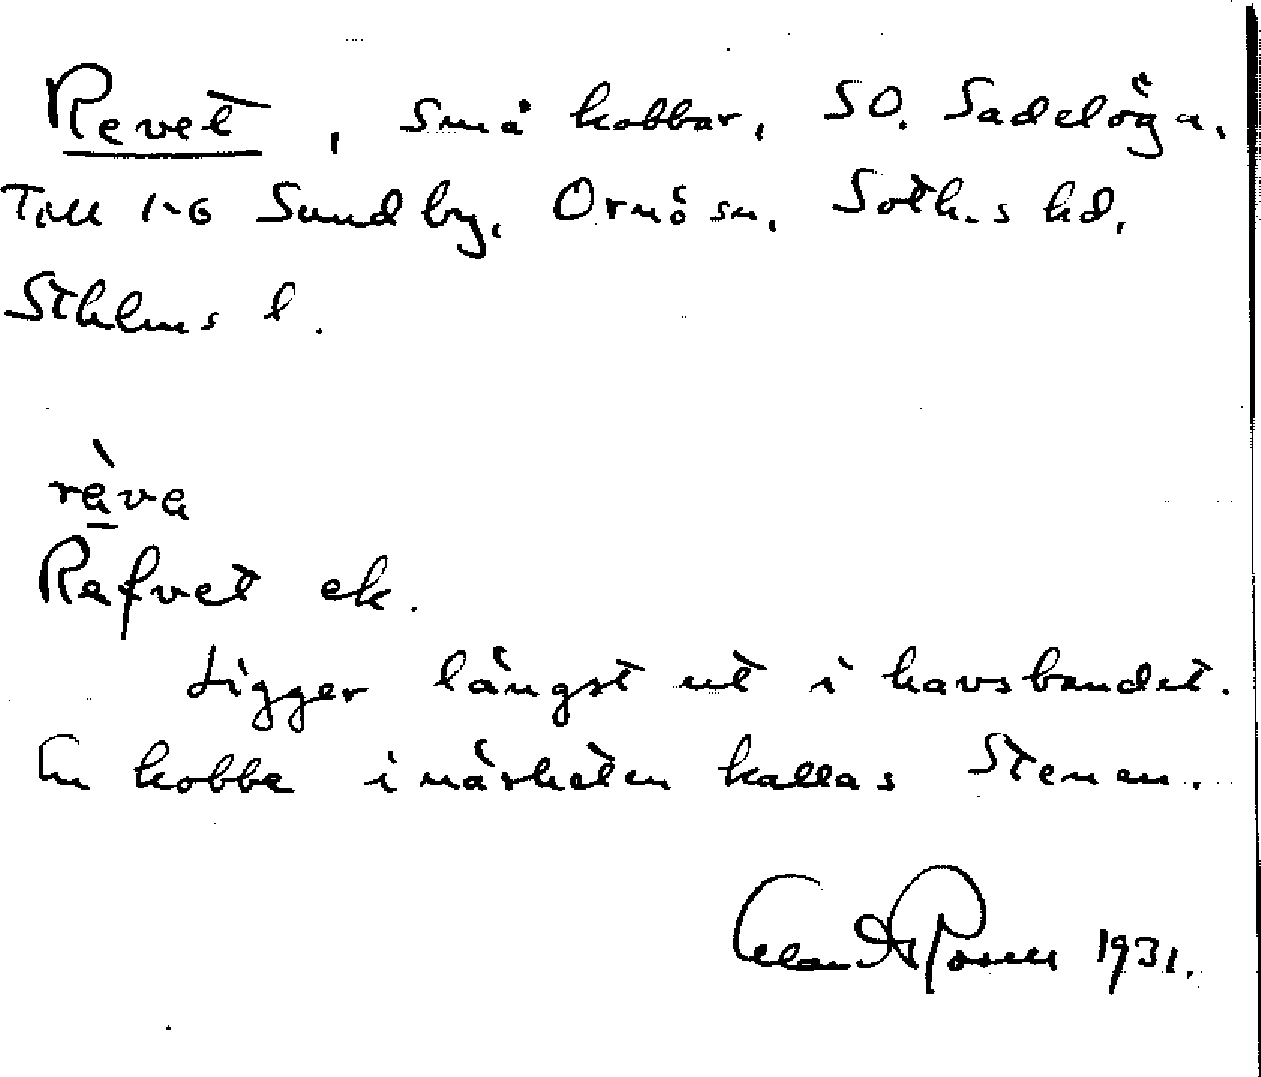 Revet, små kobbar, SO. Sadelöga,
Till 1-6 Sundby, Ornö sn, Soth.s hd,
Sthlms l.
rè̱va
Refvet ek.
Ligger längst ut i havsbandet.
En kobbe i närheten kallas Stenen.
1931.